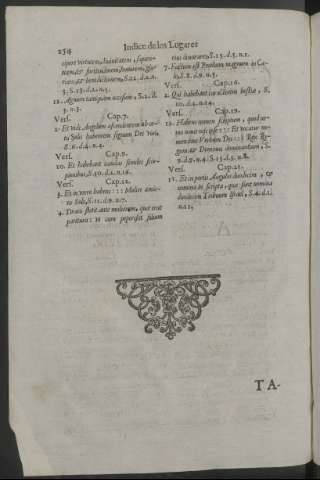 254
Indice de los Lugares
cipere virtutem, divinitatem, sapien-
tiam, & fortitudinem, honorem, glo-
riam, & benedictionem, S.12. d.2.n.
5. S.13. d.1.n.5.
12. Agnum tanquam occisum, S.2. d.
3. n.3.
Vers. Cap.7.
2. Et vidi Angelum ascendentem ab or-
tu Solis habentem signum Dei vivi.
S.6. d.4. n.4.
Vers. Cap.9.
10. Et habebant caudas similes scor-
pionibus, S.10. d.1. n.16.
Vers. Cap.12.
1. Et in utero habens : : : Mulier amic-
ta Sole, S.11. d.9. n.7.
4. Draco stetit ante mulierem, quæ erat
paritura : ut cum peperisset filium
eius devoraret, S.15. d.5. n.1.
7. Factum est Prælium magnum in Cæ-
lo, S.8. d.9. n.5.
Vers. Cap.16.
2. Qui habebant caracterem bestiæ, S.
10. d.4. n.14.
Vers. Cap.19.
12. Habens nomen scriptum, quod ne-
mo novit nisi ipse : : : Et vocatur no-
men eius Verbum Dei : : : Rex Re-
gum & Dominus dominantium, S.
2. d.2. n.4. S.15. d.5. n.8.
Vers. Cap.21.
12. Et in portis Angelos duodecim, &
nomina inscripta, quæ sunt nomina
duodecim Tribuum Israel, S.4. d.1.
n.21.
TA-